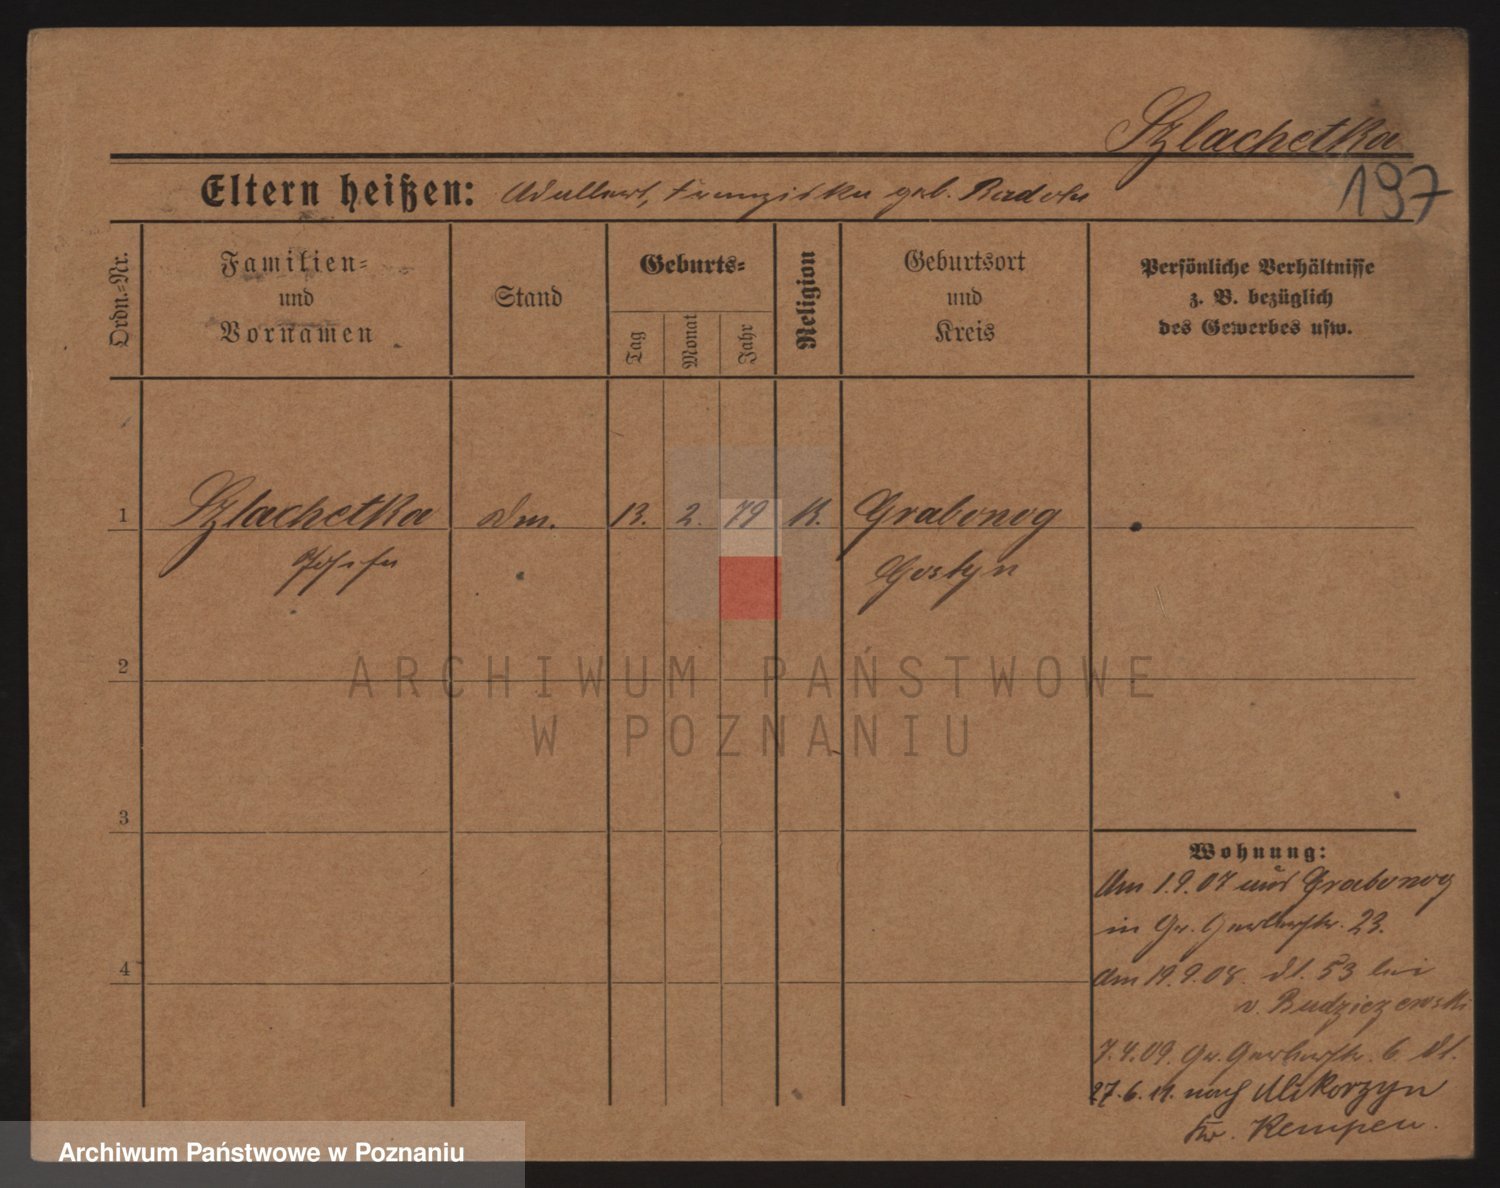 Szlachetka
197
Eltern heißen: Adalbert, Franziska geb.
Ordn.-Nr.
Familien- und Vornamen
Stand
Geburts-
Tag
Monat
Jahr
Religion
Geburtsort und Kreis
Persönliche Verhältnisse
z. B. bezüglich
des Gewerbes usw.
1 Szlachetka 13. 2. 79 K. Grabonog
Josefa Gostyn
2
ARCHIWUM PAŃSTWOWE
W POZNANIU
3
Wohnung:
Am 1.9.07 aus Grabonog
in Gr. Gerberstr. 23.
4
Am 19.9.08. dt. 53 bei
v. Budziszewski
7.4.09. Gr. Gerberstr. 6 dt.
27.6.11. nach Mikorzyn
Kr. Kempen.
Archiwum Państwowe w Poznaniu